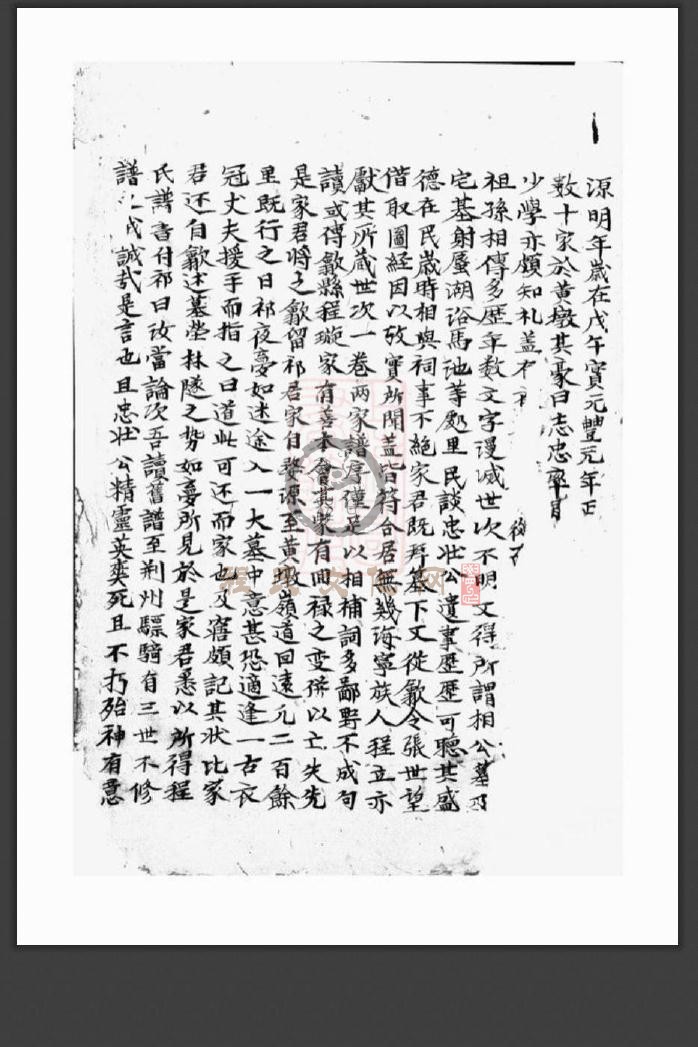 源明年歲在戊午實元豐元年正
数十家於黄墩其豪曰志忠率首
少學亦頗知礼盖
祖孫相傳多歷年数文字漫滅世次不明又得所謂相公墓
宅基射蜃湖浴馬池等處里民談忠壯公遺事歷歷可聽其盛
德在民歲時相與祠事不絶家君既拜墓下又從歙令張世望
借取圖經因以攷實所聞盖皆符合居無幾海寧族人程立亦
獻其所蔵世次一卷两家譜序僅足以相補詞多鄙野不成句
讀或傳歙縣程璇家有善本會其家有回禄之变併以亡失先
是家君将之歙留祁君家自婺源至黄墩嶺道回遠元二百餘
里既行之日祁夜夢如迷途入一大墓中意甚恐適逢一古衣
冠丈夫援手而指之曰道此可还而家也又寤頗記其状比家
君还自歙述墓塋林隧之势如夢所見於是家君悉以所得程
氏譜書付祁曰汝當論次吾讀舊譜至荆州驃騎有三世不修
譜之戒誠哉是言也且忠壯公精靈英奕死且不朽殆神有意
程氏文化网